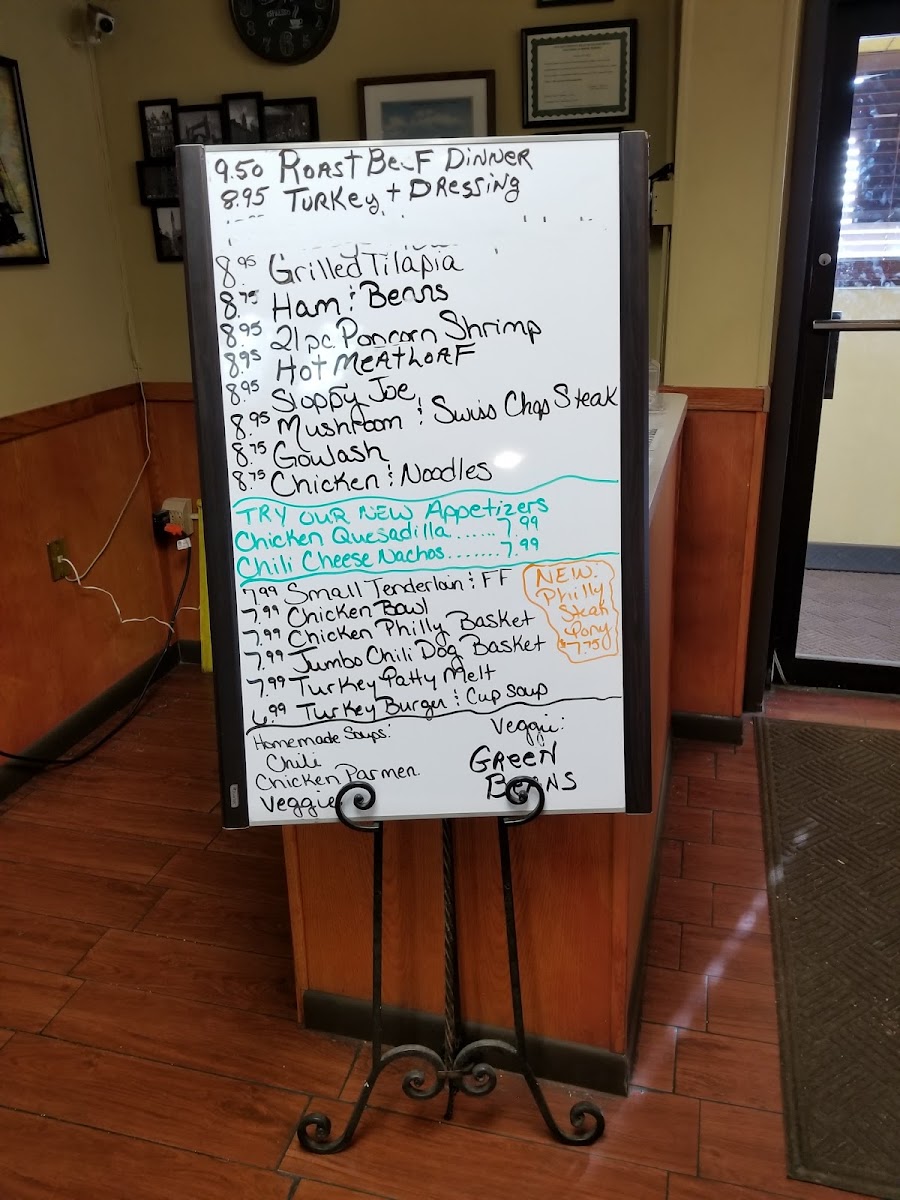 9.50 ROAST BEEF DINNER
8.95 TURKEY + DRESSING
8.95 Grilled Tilapia
8.75 Ham & Beans
8.95 21pc. Poncorn Shrimp
8.95 HOT MEATLOAF
8.95 Sloppy Joe
8.95 Mushroom & Swiss Chop Steak
8.75 Gowlash
8.75 Chicken & Noodles
TRY OUR NEW Appetizers
Chicken Quesadilla...... 7.99
Chili Cheese Nachos....... 7.99
7.99 Small Tenderloin & FF
7.99 Chicken Bowl
7.99 Chicken Philly Basket
7.99 Jumbo Chili Dog Basket
7.99 Turkey Patty Melt
6.99 Turkey Burger & Cup Soup
NEW:
Philly
Steak
Pony
$7.75
Homemade Soups:
Chili
Chicken Parmen.
Veggie
Veggie:
GREEN
BEANS